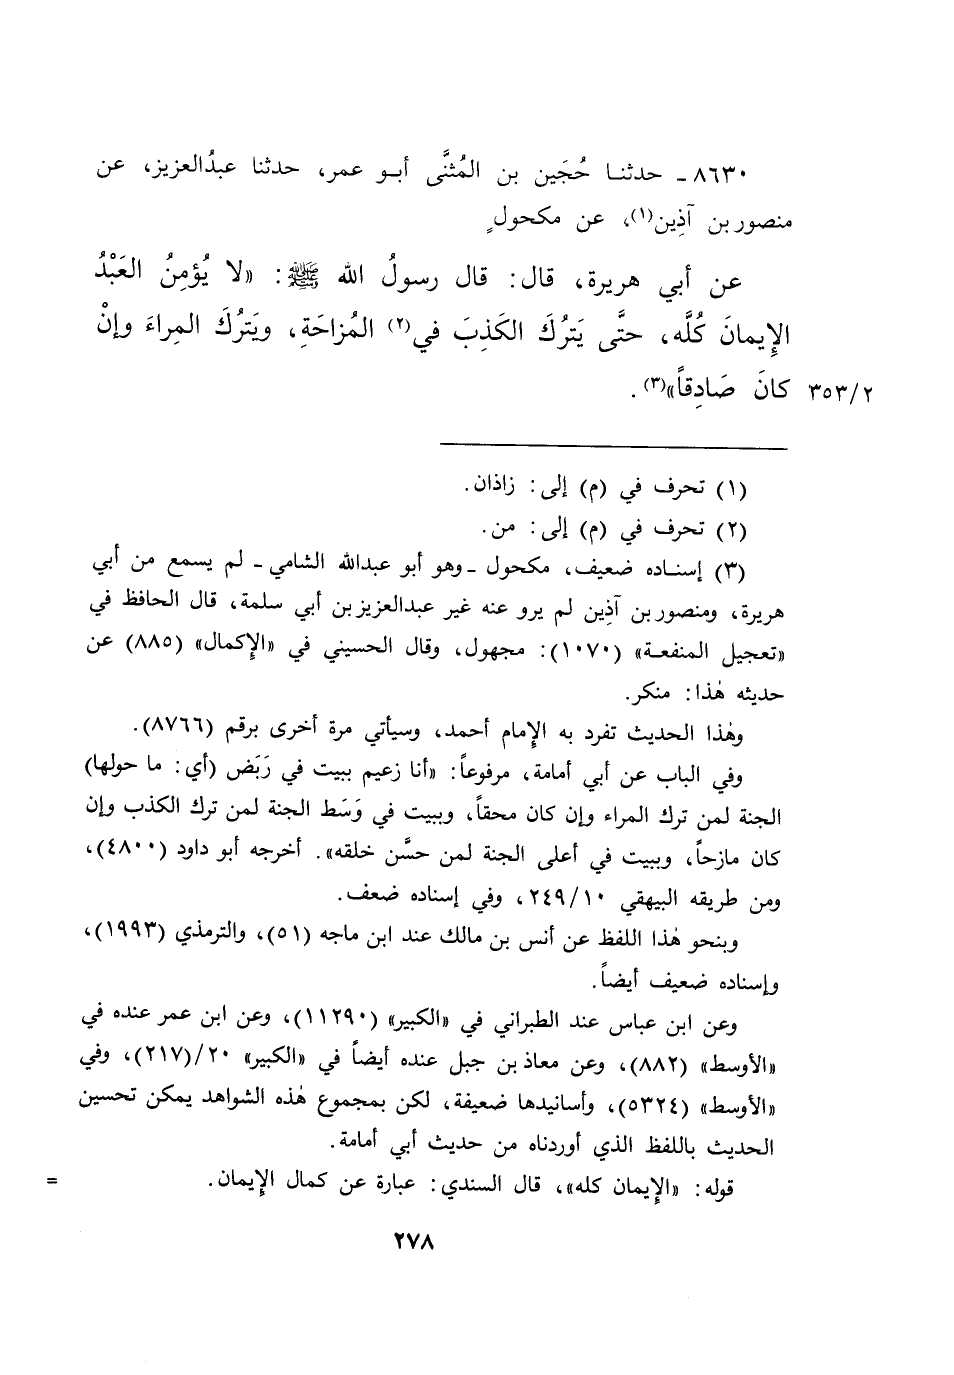 ٨٦٣٠ - حدثنـا حُجَين بن المُثنَّى أبـو عمر، حدثنا عبدُالعزيز، عن
منصور بن آذِين(١)، عن مكحولٍ
عن أبي هريرة، قال: قال رسولُ الله ﷺ: «لا يُؤمِنُ العَبْدُ
الإِيمانَ كُلَّه، حتَّى يَترُكَ الكَذِبَ في(٢) المُزاحَةِ، ويَترُكَ المِراءَ وإنْ
كانَ صَادِقاً»(٣). ٣٥٣/٢
(١) تحرف في (م) إلى: زاذان.
(٢) تحرف في (م) إلى: من.
(٣) إسنـاده ضعيف، مكحول ـ وهو أبو عبدالله الشامي ـ لم يسمع من أبي
هريرة، ومنصور بن آذِين لم يرو عنه غير عبدالعزيز بن أبي سلمة، قال الحافظ في
«تعجيل المنفعـة» (١٠٧٠): مجهول، وقال الحسيني في «الإكمال» (٨٨٥) عن
حديثه هٰذا: منكر.
وهٰذا الحديث تفرد به الإِمام أحمد، وسيأتي مرة أخرى برقم (٨٧٦٦).
وفي الباب عن أبي أمامة، مرفوعاً: «أنا زعيم ببيت في رَبَض (أي: ما حولها)
الجنة لمن ترك المراء وإن كان محقاً، وببيت في وَسَط الجنة لمن ترك الكذب وإن
كان مازحاً، وببيت في أعلى الجنة لمن حسَّن خلقه». أخرجه أبو داود (٤٨٠٠)،
ومن طريقه البيهقي ٢٤٩/١٠، وفي إسناده ضعف.
وبنحو هٰذا اللفظ عن أنس بن مالك عند ابن ماجه (٥١)، والترمذي (١٩٩٣)،
وإسناده ضعيف أيضاً.
وعن ابن عباس عند الطبراني في «الكبير» (١١٢٩٠)، وعن ابن عمر عنده في
«الأوسط» (٨٨٢)، وعن معاذ بن جبل عنده أيضاً في «الكبير» ٢٠/(٢١٧)، وفي
«الأوسط» (٥٣٢٤)، وأسانيدها ضعيفة، لكن بمجموع هٰذه الشواهد يمكن تحسين
الحديث باللفظ الذي أوردناه من حديث أبي أمامة.
قوله: «الإِيمان كله»، قال السندي: عبارة عن كمال الإِيمان. =
٢٧٨